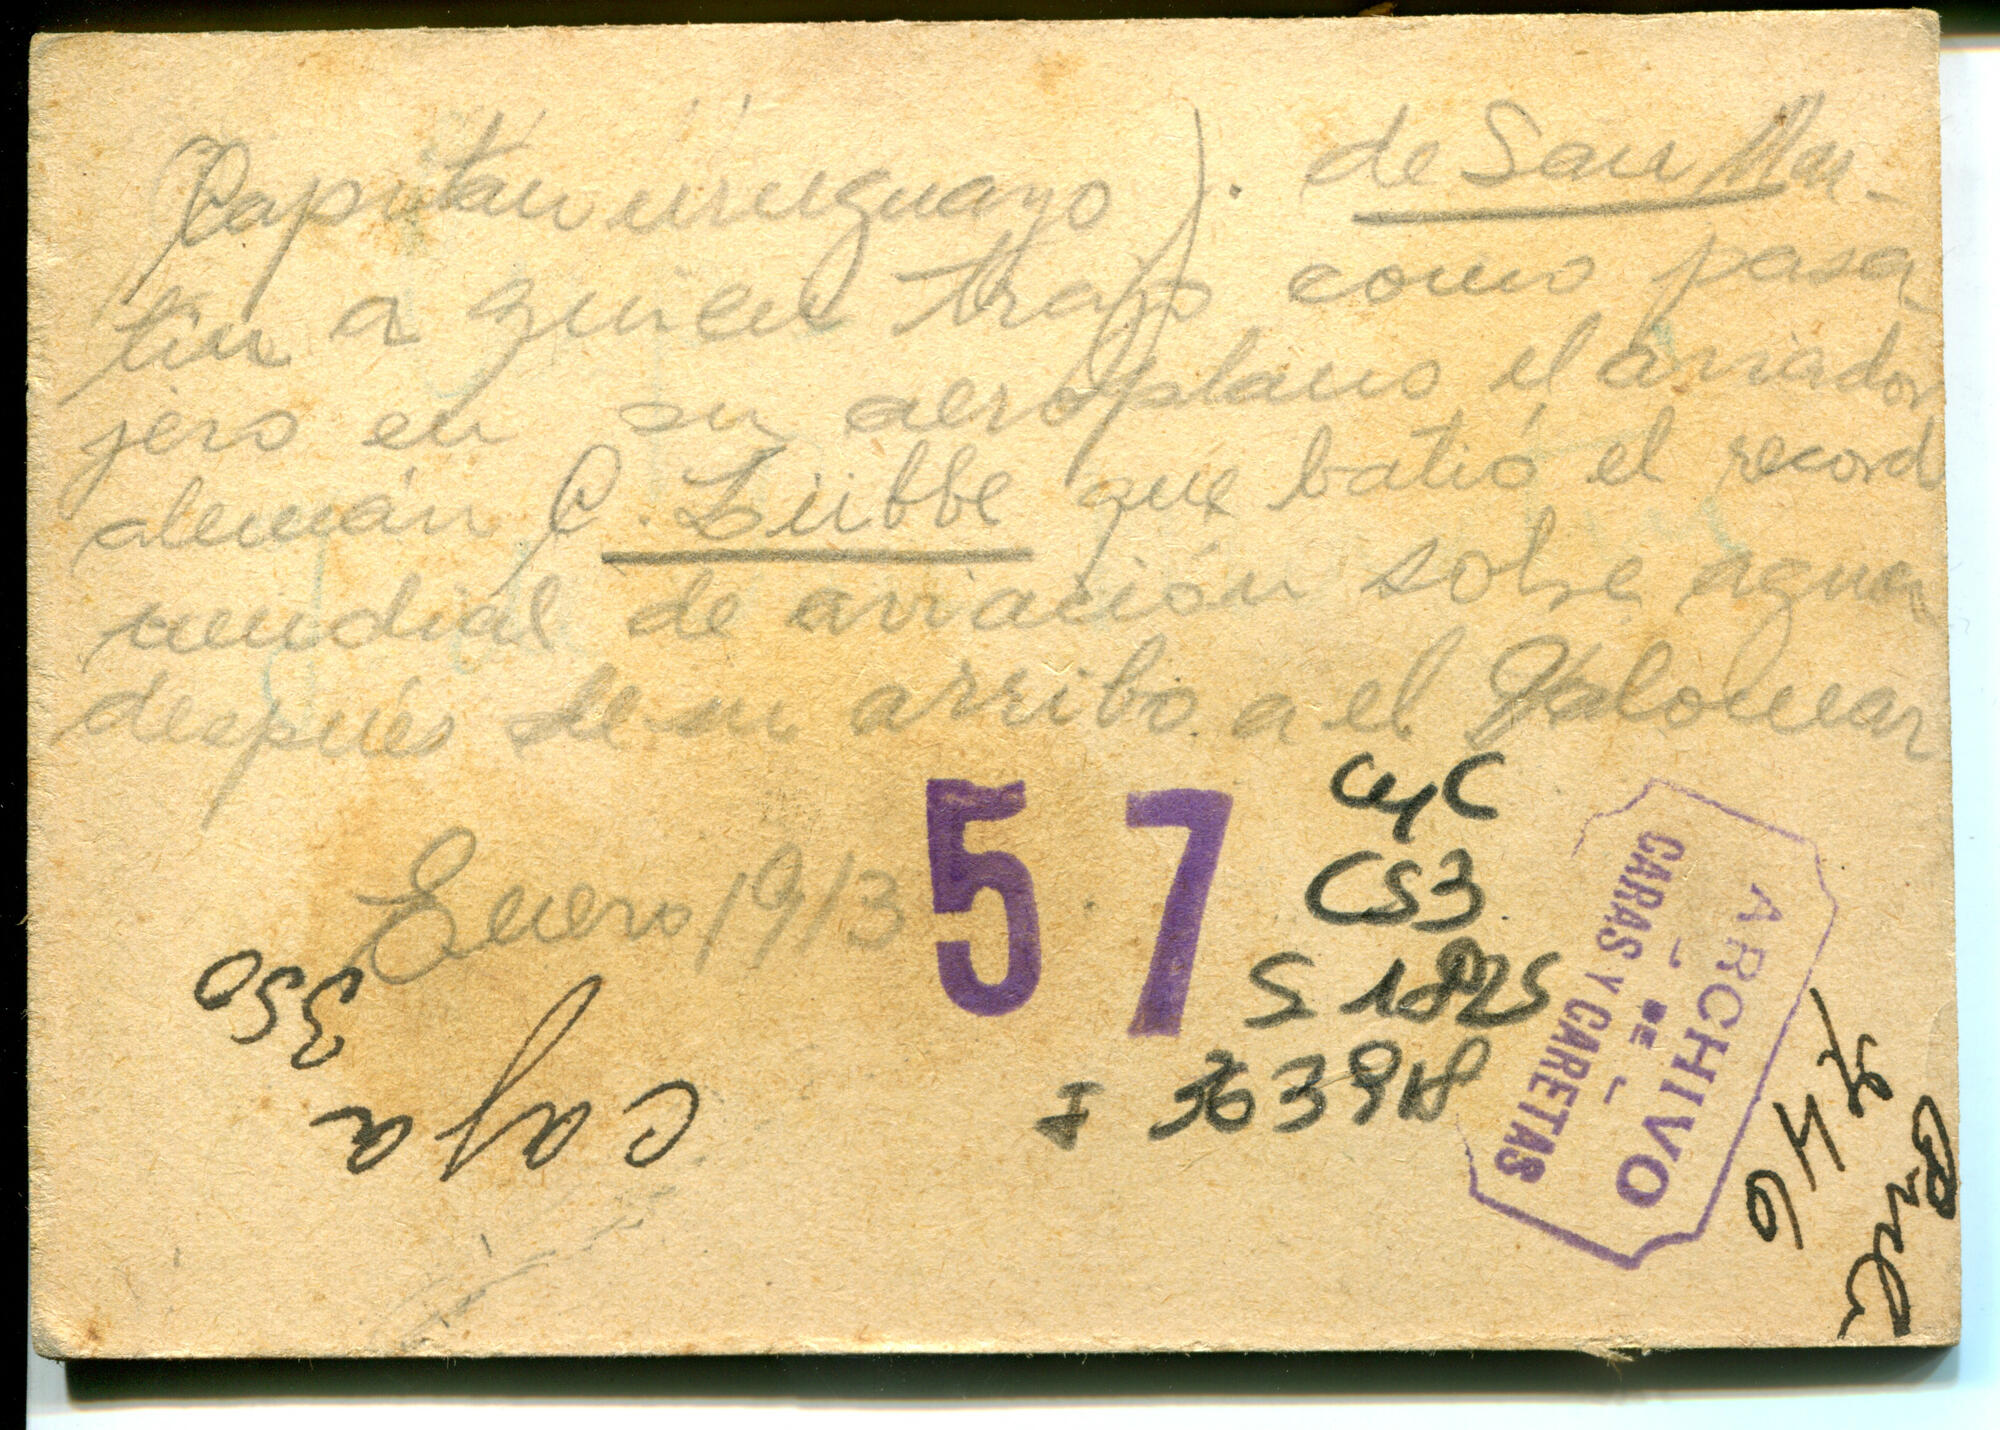 (Capitán uruguayo). de San Mar-
tin a quien trajo como pasa
jero en su aeroplano el aviador
alemán C. Lübbe que batió el record
mundial de aviación sobre agua
después de su arribo a el Palomar
Enero 1913
57
CyC
CS3
S 1825
I 363918
ARCHIVO
- DE -
CARAS Y CARETAS
Caja
350